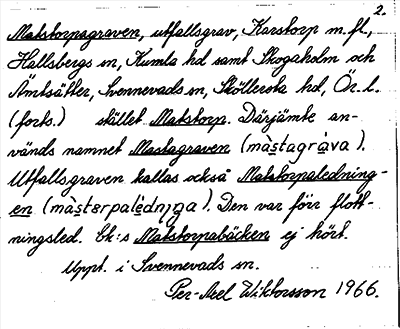 2.
Matstorpagraven, utfallsgrav, Karstorp m.fl.,
Hallsbergs sn, Kumla hd samt Skogaholm och
Ämtsätter, Svennevads sn, Sköllersta hd, Ör. l.
(forts.) stället Matstorp. Därjämte an-
vänds namnet Mastagraven (màstagràva).
Utfallsgraven kallas också Matstorpaledning-
en (màstərpalèdnıŋa). Den var förr flott-
ningsled. Ek:s Matstorpabäcken ej hört.
Uppt. i Svennevads sn.
Per-Axel Wiktorsson 1966.